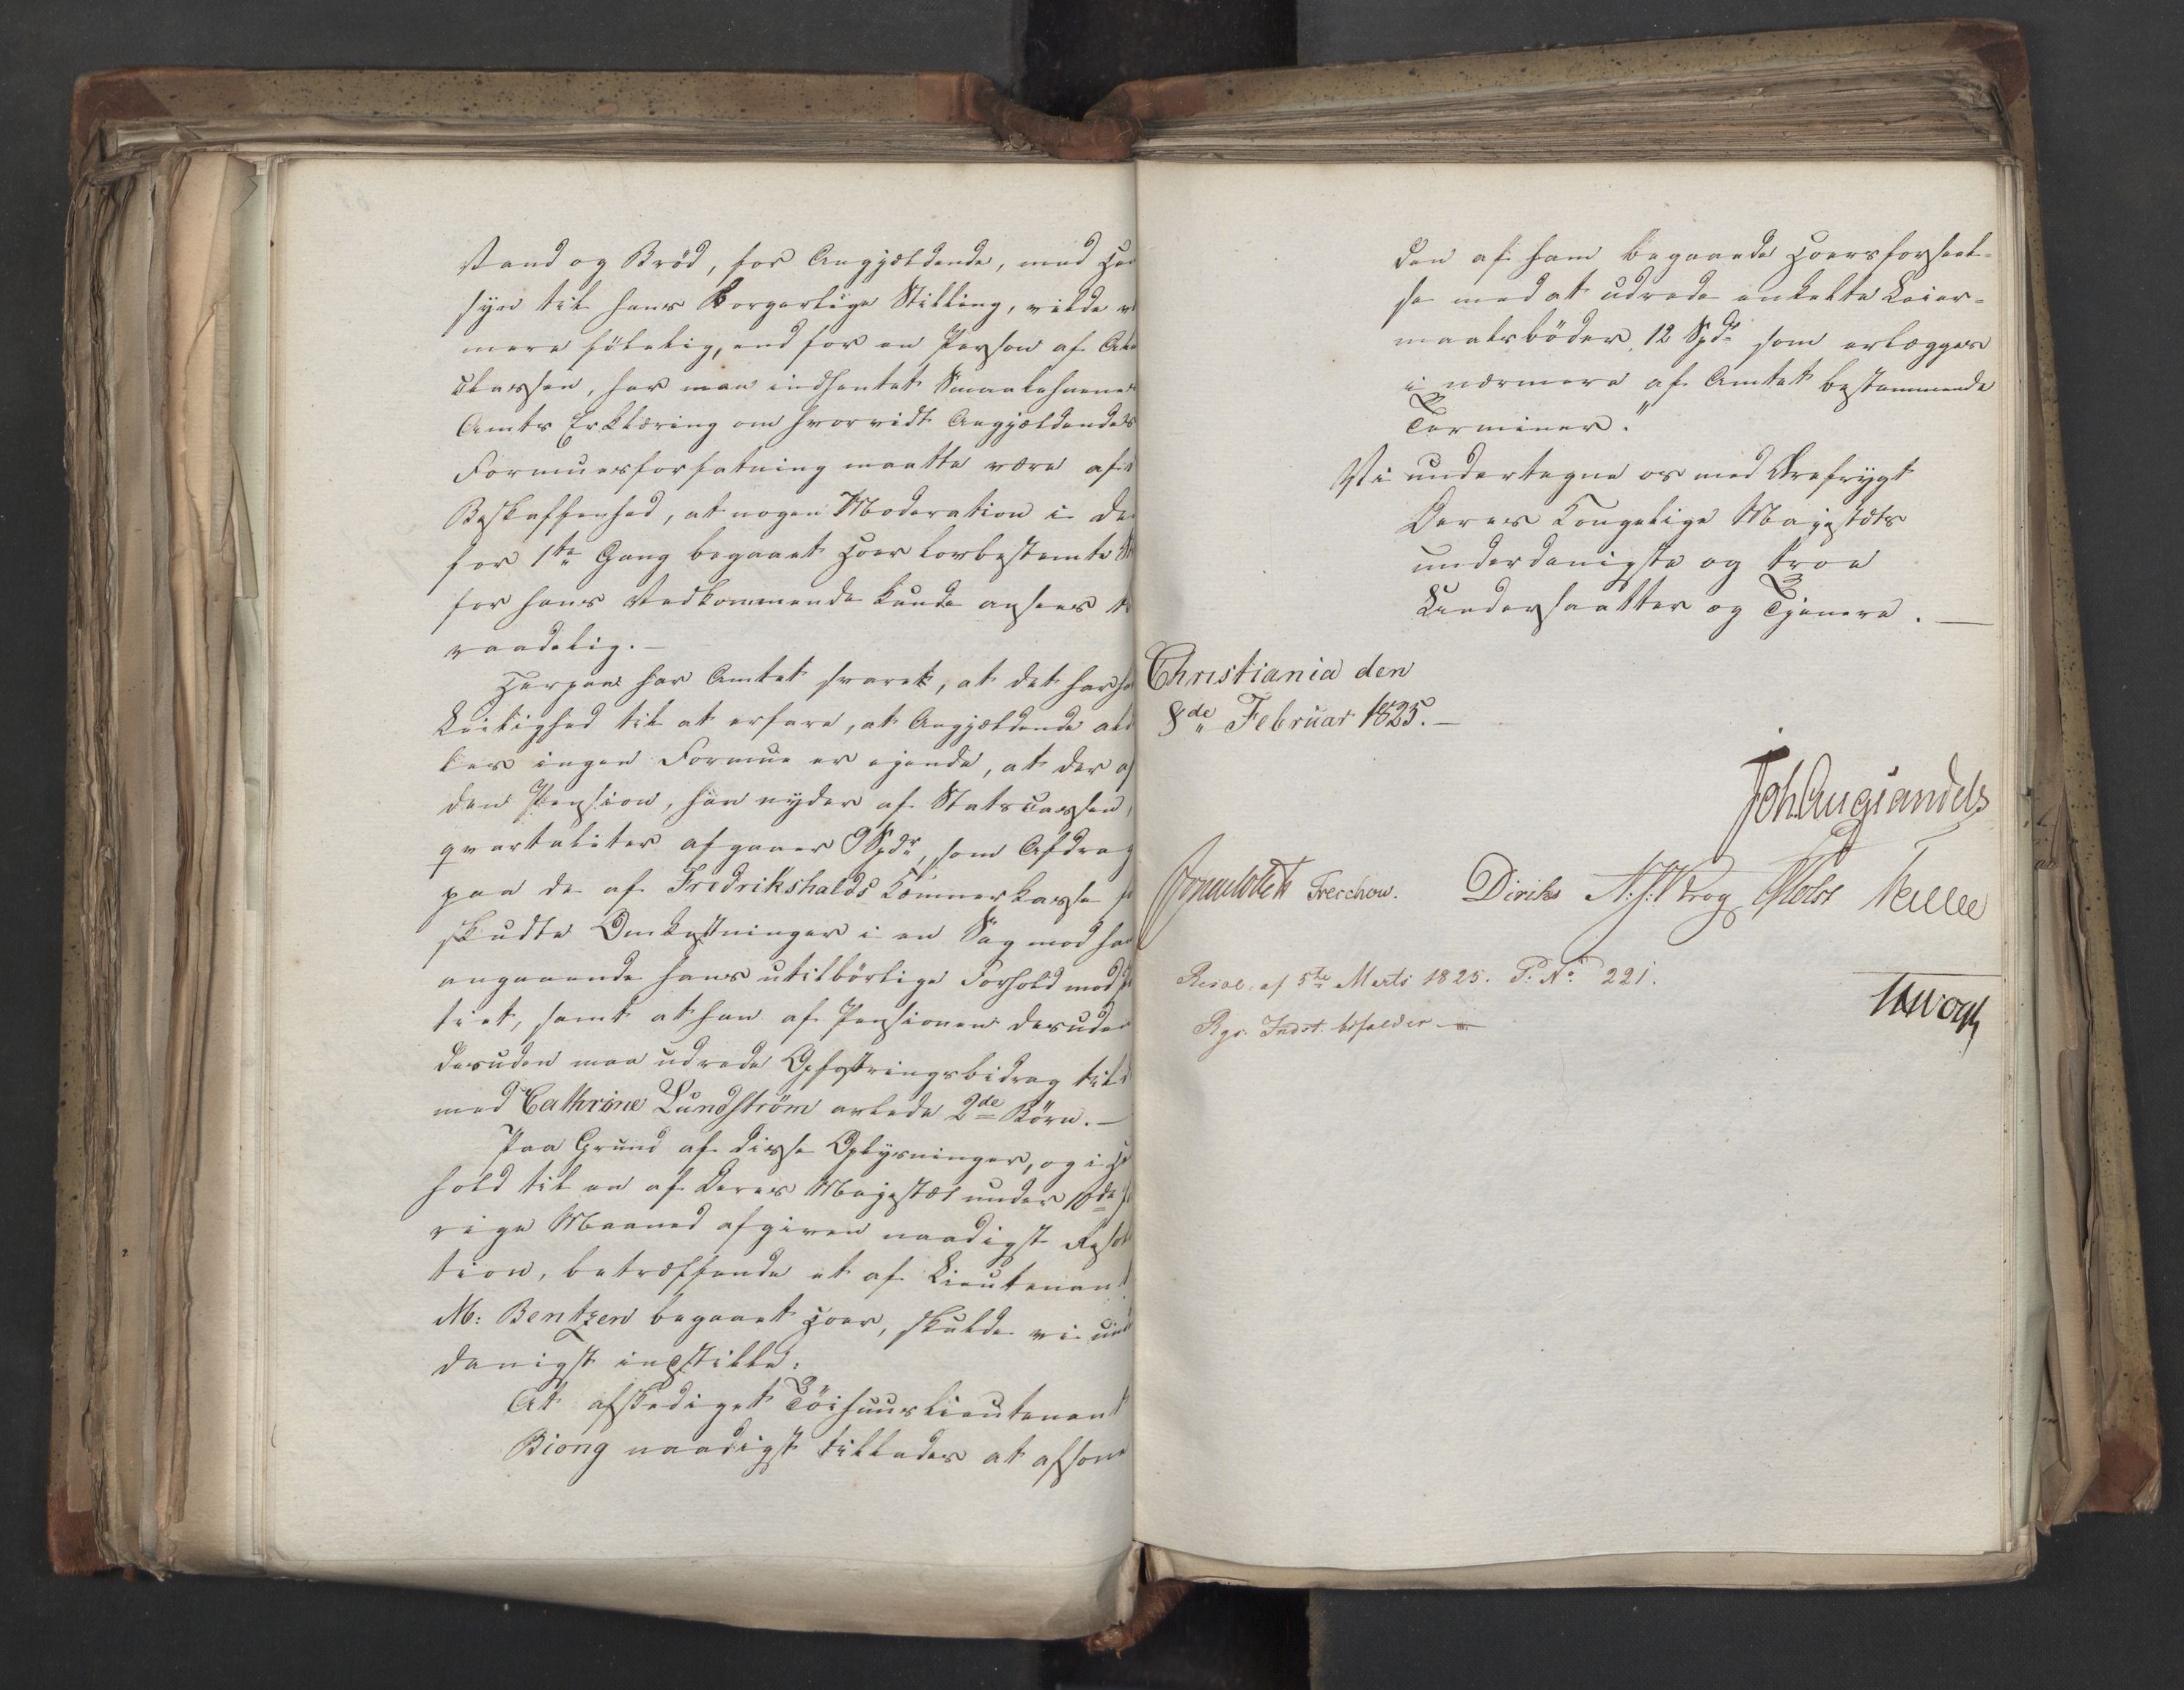 Vand og Brød, for Angjældende, med Hen
syn til hans borgerlige Stilling, vilde v
mere følelig, end for en Person af Alm
classen, har man indhentet Smaalehnenes
Amts Erklæring om hvorvidt Angjældendes
Formuesforfatning maatte være af
Beskaffenhed, at nogen Moderation i de
for 1ste Gang begaaet Hoer lovbestemte
for hans Vedkommende kunde ansees til
raadelig.—
Herpaa har Amtet svaret, at det har ha
Leilighed til at erfare, at Angjældende al
les ingen Formue er eiende, at der af
den Pension, han nyder af Statscassen,
qvartaliter afgaaer 9 Spdr, som Afdrag
paa de af Fredrikshalds Kæmnerkasse
skudte Omkostninger i en Sag mod ham
angaaende hans utilbørlige Forhold mod
tiet, samt at han af Pensionen desuden
desuden maa udrede Opfostringsbidrag til
med Cathrine Lundstrøm avlede 2de Børn.—
Paa Grund af disse Oplysninger, og i He
hold til en af Deres Majestæt under 10de
rige Maaned afgiven naadigst Resolu
tion, betræffende et af Lieutenant
M: Bentzen begaaet Hoer, skulde vi un
danigst indstille:
At afskediget Tøihuuslieutenant
Biong naadigst tillades at afsone
den af ham begaaede Hoersforseel-
se med at udrede enkelte Leier-
maalsbøder, 12 Spdr som erlægges
i nærmere af Amtet bestemmende
Terminer."
Vi undertegne os med Ærefrygt
Deres Kongelige Majestæts
underdanigste og troe
Undersaatter og Tjenere.—
Christiania den
8de Februar 1825.—
Joh Aug Sandels
Sommerfeldt Treschow. Diriks A:J: Krog Holst
Resol. af 5te Marts 1825. P. No 221.
Rgs. Indst. bifaldes.—